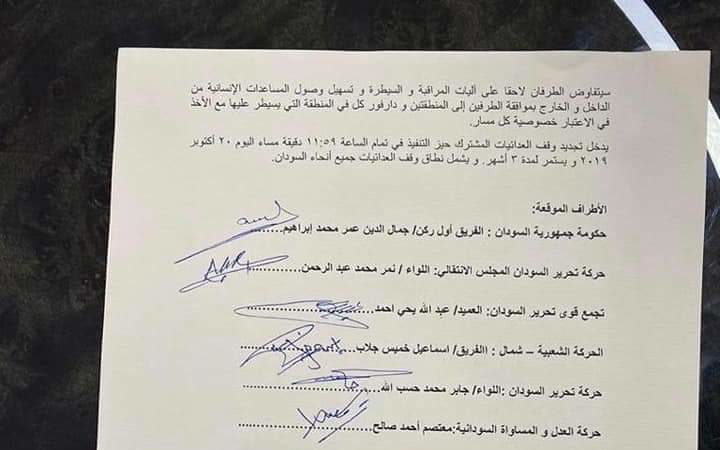 سيتفاوض الطرفان لاحقا على آليات المراقبة و السيطرة و تسهيل وصول المساعدات الإنسانية من
الداخل و الخارج بموافقة الطرفين إلى المنطقتين و دارفور كل في المنطقة التي يسيطر عليها مع الأخذ
في الاعتبار خصوصية كل مسار.
يدخل تجديد وقف العدائيات المشترك حيز التنفيذ في تمام الساعة ١١:٥٩ دقيقة مساء اليوم ٢٠ أكتوبر
٢٠١٩ و يستمر لمدة ٣ أشهر. و يشمل نطاق وقف العدائيات جميع أنحاء السودان.
الأطراف الموقعة:
حكومة جمهورية السودان : الفريق أول ركن/ جمال الدين عمر محمد إبراهيم........
حركة تحرير السودان المجلس الانتقالي: اللواء / نمر محمد عبد الرحمن................
تجمع قوى تحرير السودان: العميد/ عبد الله يحي احمد........................
الحركة الشعبية – شمال : االفريق/ اسماعيل خميس جلاب........................
حركة تحرير السودان :اللواء/ جابر محمد حسب الله........................
حركة العدل و المساواة السودانية:معتصم أحمد صالح........................